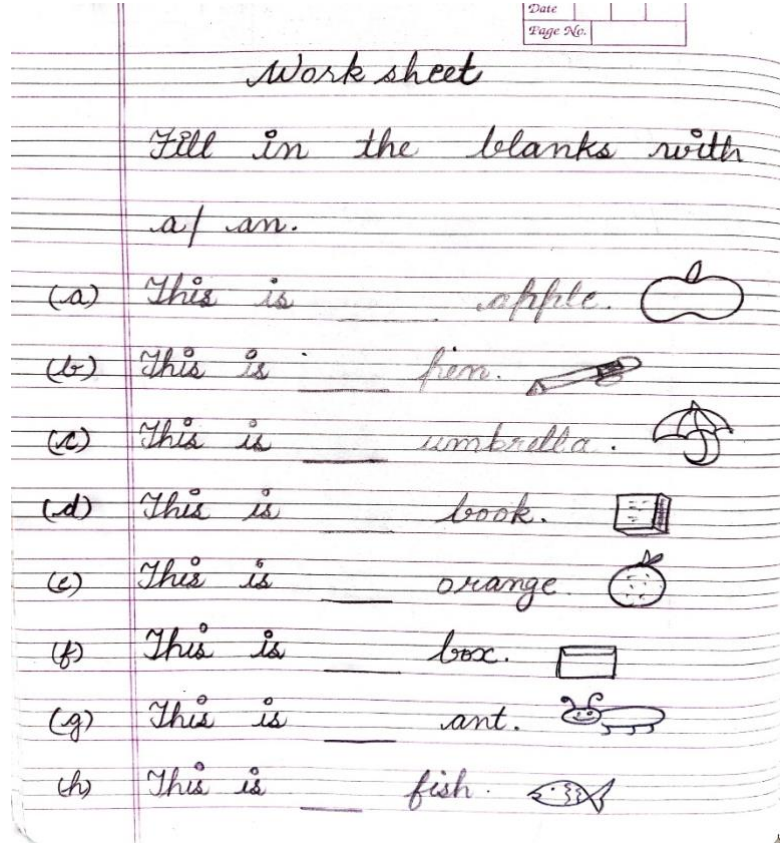 Date
Page No.
Work sheet
Fill in the blanks with
a/ an.
(a) This is ____ apple.
(b) This is ____ pen.
(c) This is ____ umbrella.
(d) This is ____ book.
(e) This is ____ orange.
(f) This is ____ box.
(g) This is ____ ant.
(h) This is ____ fish.